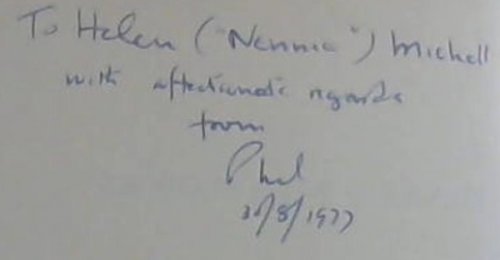 To Helen ("Nennie") Michell
with affectionate regards
from
Phil
31/8/1977